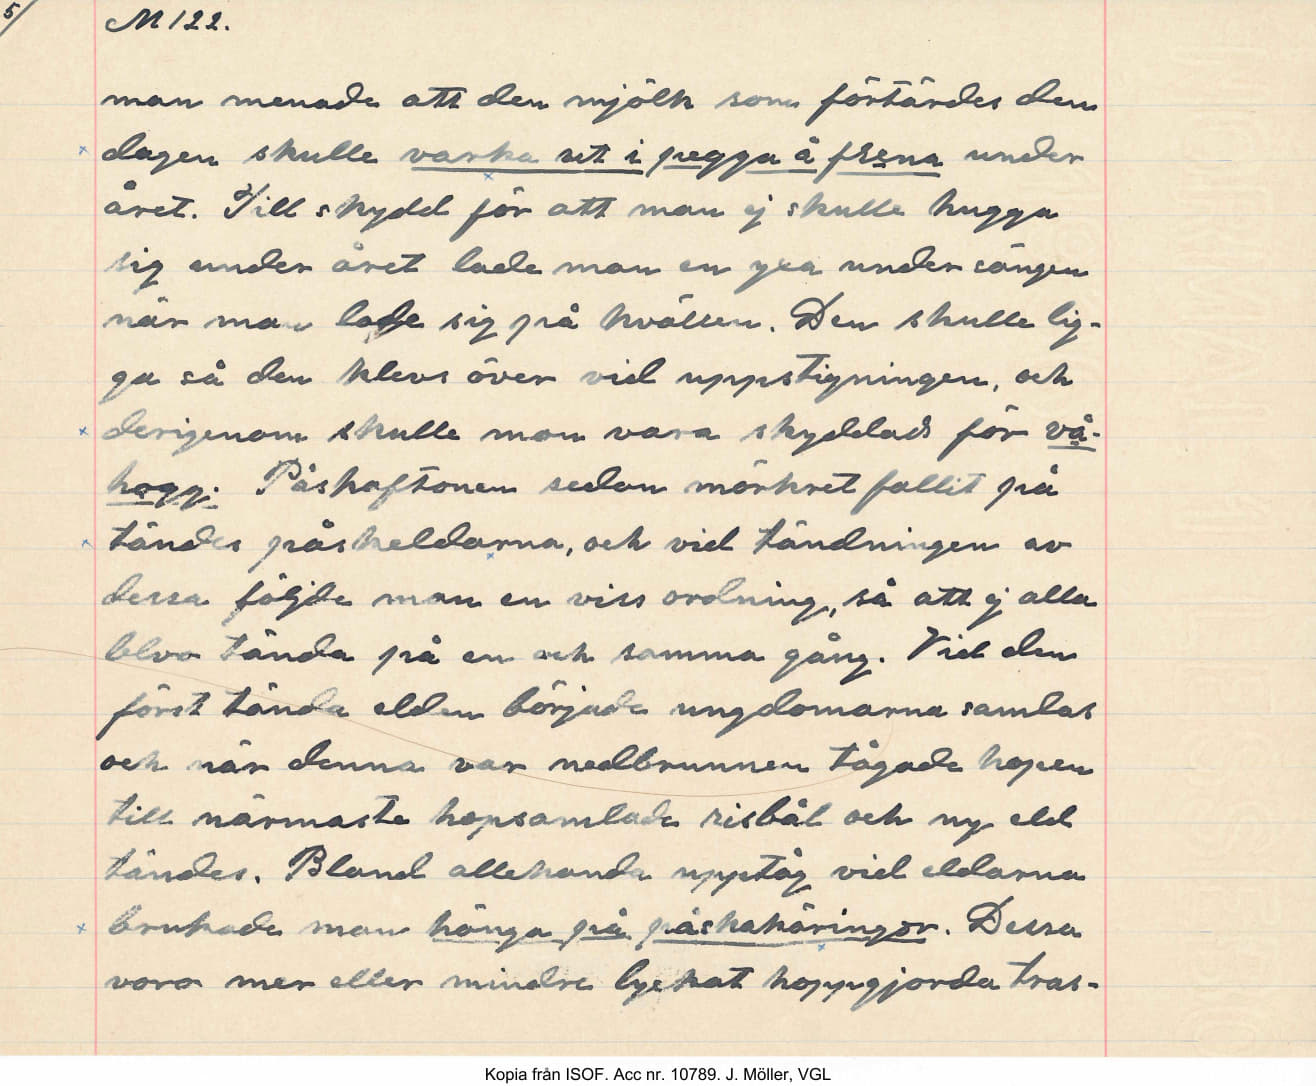 5
M 122.
man menade att den mjölk som förtärdes den
dagen skulle varka ut i pegga å fræna under
året. Till skydd för att man ej skulle hugga
sig under året lade man en yxa under sängen
när man lade sig på kvällen. Den skulle lig-
ga så den klevs över vid uppstigningen, och
derigenom skulle man vara skyddad för vå-
hogg. Påskaftonen sedan mörkret fallit på
tändes påskeldarna, och vid tändningen av
dessa följde man en viss ordning, så att ej alla
blvo tända på en och samma gång. Vid den
först tända elden började ungdomarna samlas
och när denna var nedbrunnen tågade hopen
till närmaste hopsamlade risbål och ny eld
tändes. Bland allehanda upptåg vid eldarna
brukade man hänga på påskakäringor. Dessa
voro mer eller mindre lyckat hoppgjorda tras-
Kopia från ISOF. Acc nr. 10789. J. Möller, VGL